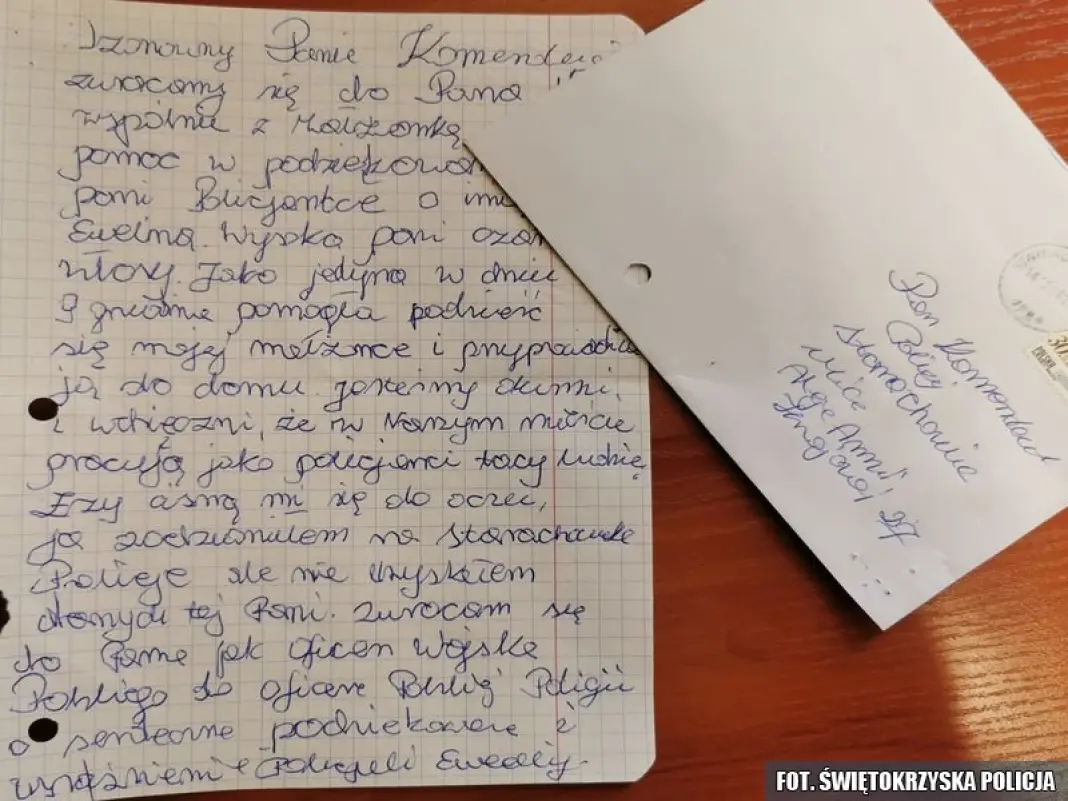 Szanowny Panie
zwracamy się do Pana
wspólnie z Małżonką
pomoc w
pani Policjantce o
Eweliną. Wysoka pani
włosy. Jako jedyna w dniu
9 grudnia pomogła podnieść
się mojej małżonce i
ją do domu jesteśmy dumni,
i wdzięczni, że w Naszym mieście
pracują jako policjanci tacy ludzie
Łzy cisną mi się do oczu,
ja zadzwoniłem na Starachowicką
Policję ale nie uzyskałem
danych tej Pani. zwracam się
do Pana jak oficer Wojska
Polskiego do oficera Polskiej Policji
o serdeczne podziękowanie i
Policjantki Eweliny.
Pan Komendant
Policji
Starachowice
ulica
Armii
Krajowej 27
FOT. ŚWIĘTOKRZYSKA POLICJA